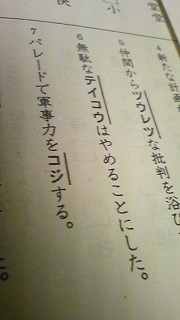 4 新たな計画
5 仲間からツウレツな批判を浴び
6 無駄なテイコウはやめることにした。
7 パレードで軍事力をコジする。